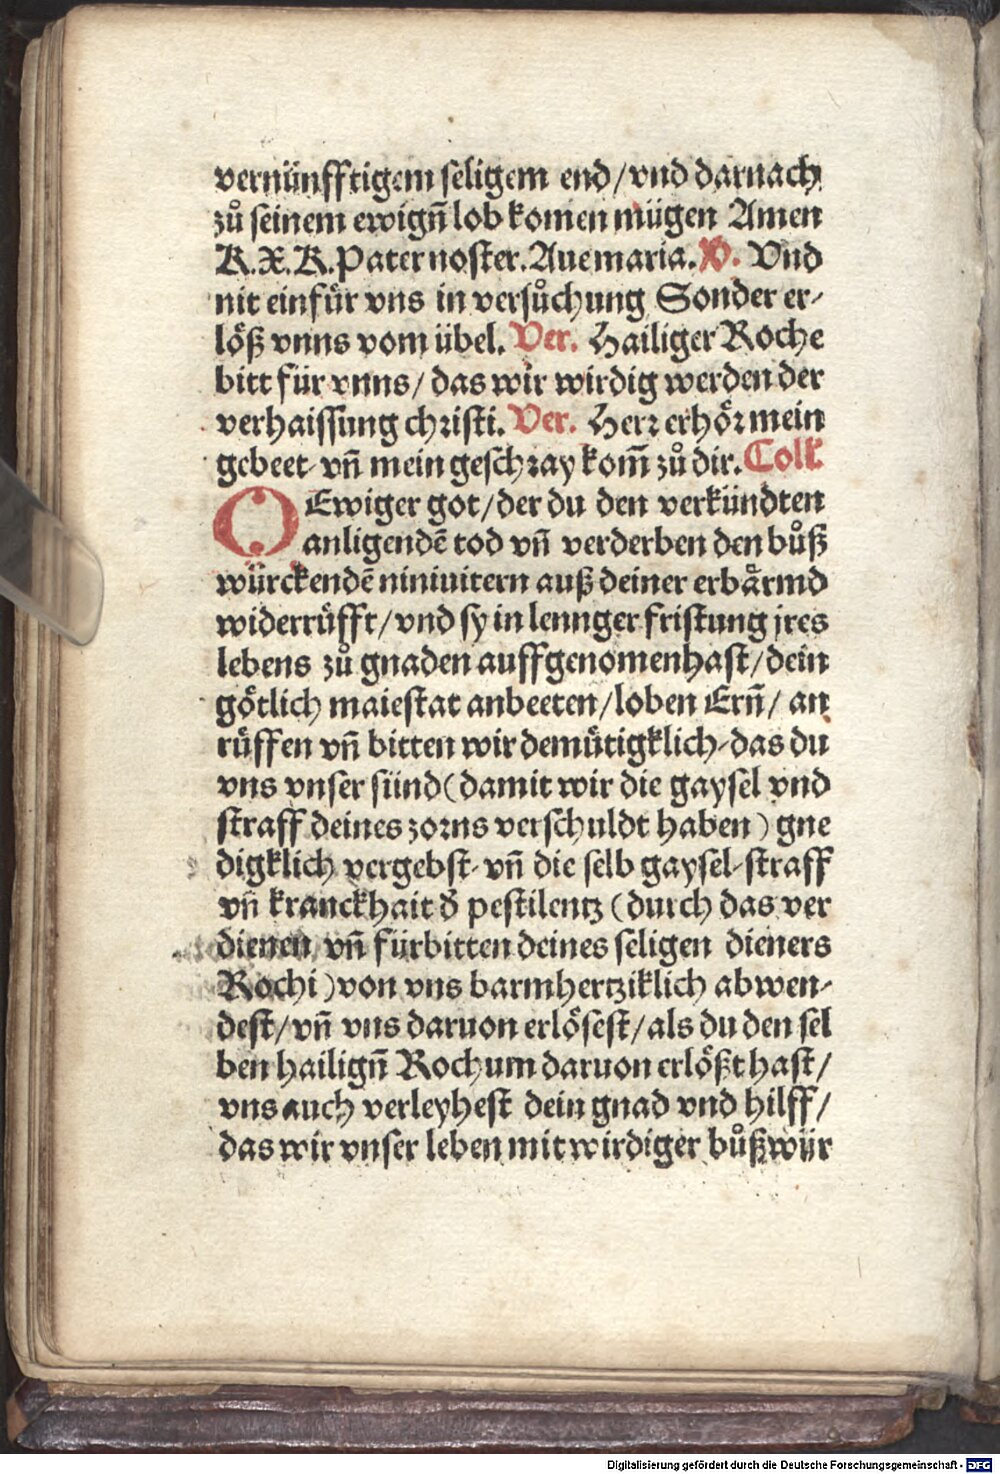 vernünfftigem seligem end/vnd darnach
zů seinem ewigñ lob komen mügen Amen
K.X.K.Pater noster.Aue maria.V. Vnd
nit einfür vns in versůchung Sonder er-
löß vnns vom übel. Ver. Hailiger Roche
bitt für vnns/das wir wirdig werden der
verhaissung christi. Ver. Herr erhör mein
gebeet-vñ mein geschray kom̃ zů dir. Coll.
O Ewiger got/der du den verkündten
anligendẽ tod vñ verderben den bůß
würckendẽ niniuitern auß deiner erbärmd
widerrüfft/vnd sy in lennger fristung jres
lebens zů gnaden auffgenomen hast/dein
götlich maiestat anbeeten/loben Ern̄/ an
rüffen vñ bitten wir demütigklich-das du
vns vnser sünd(damit wir die gaysel vnd
straff deines zorns verschuldt haben) gne
digklich vergebst-vñ die selb gaysel-straff
vñ kranckhait d̕ pestilentz (durch das ver
dienen vñ fürbitten deines seligen dieners
Rochi)von vns barmhertziklich abwen-
dest/vñ vns daruon erlösest/als du den sel
ben hailigñ Rochum daruon erlößt hast/
vns auch verleyhest dein gnad vnd hilff/
das wir vnser leben mit wirdiger bůßwür
Digitalisierung gefördert durch die Deutsche Forschungsgemeinschaft - DFG